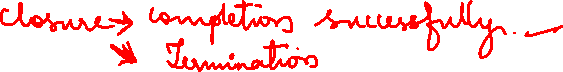 Closure → completion successfully. ✓
↘ Termination